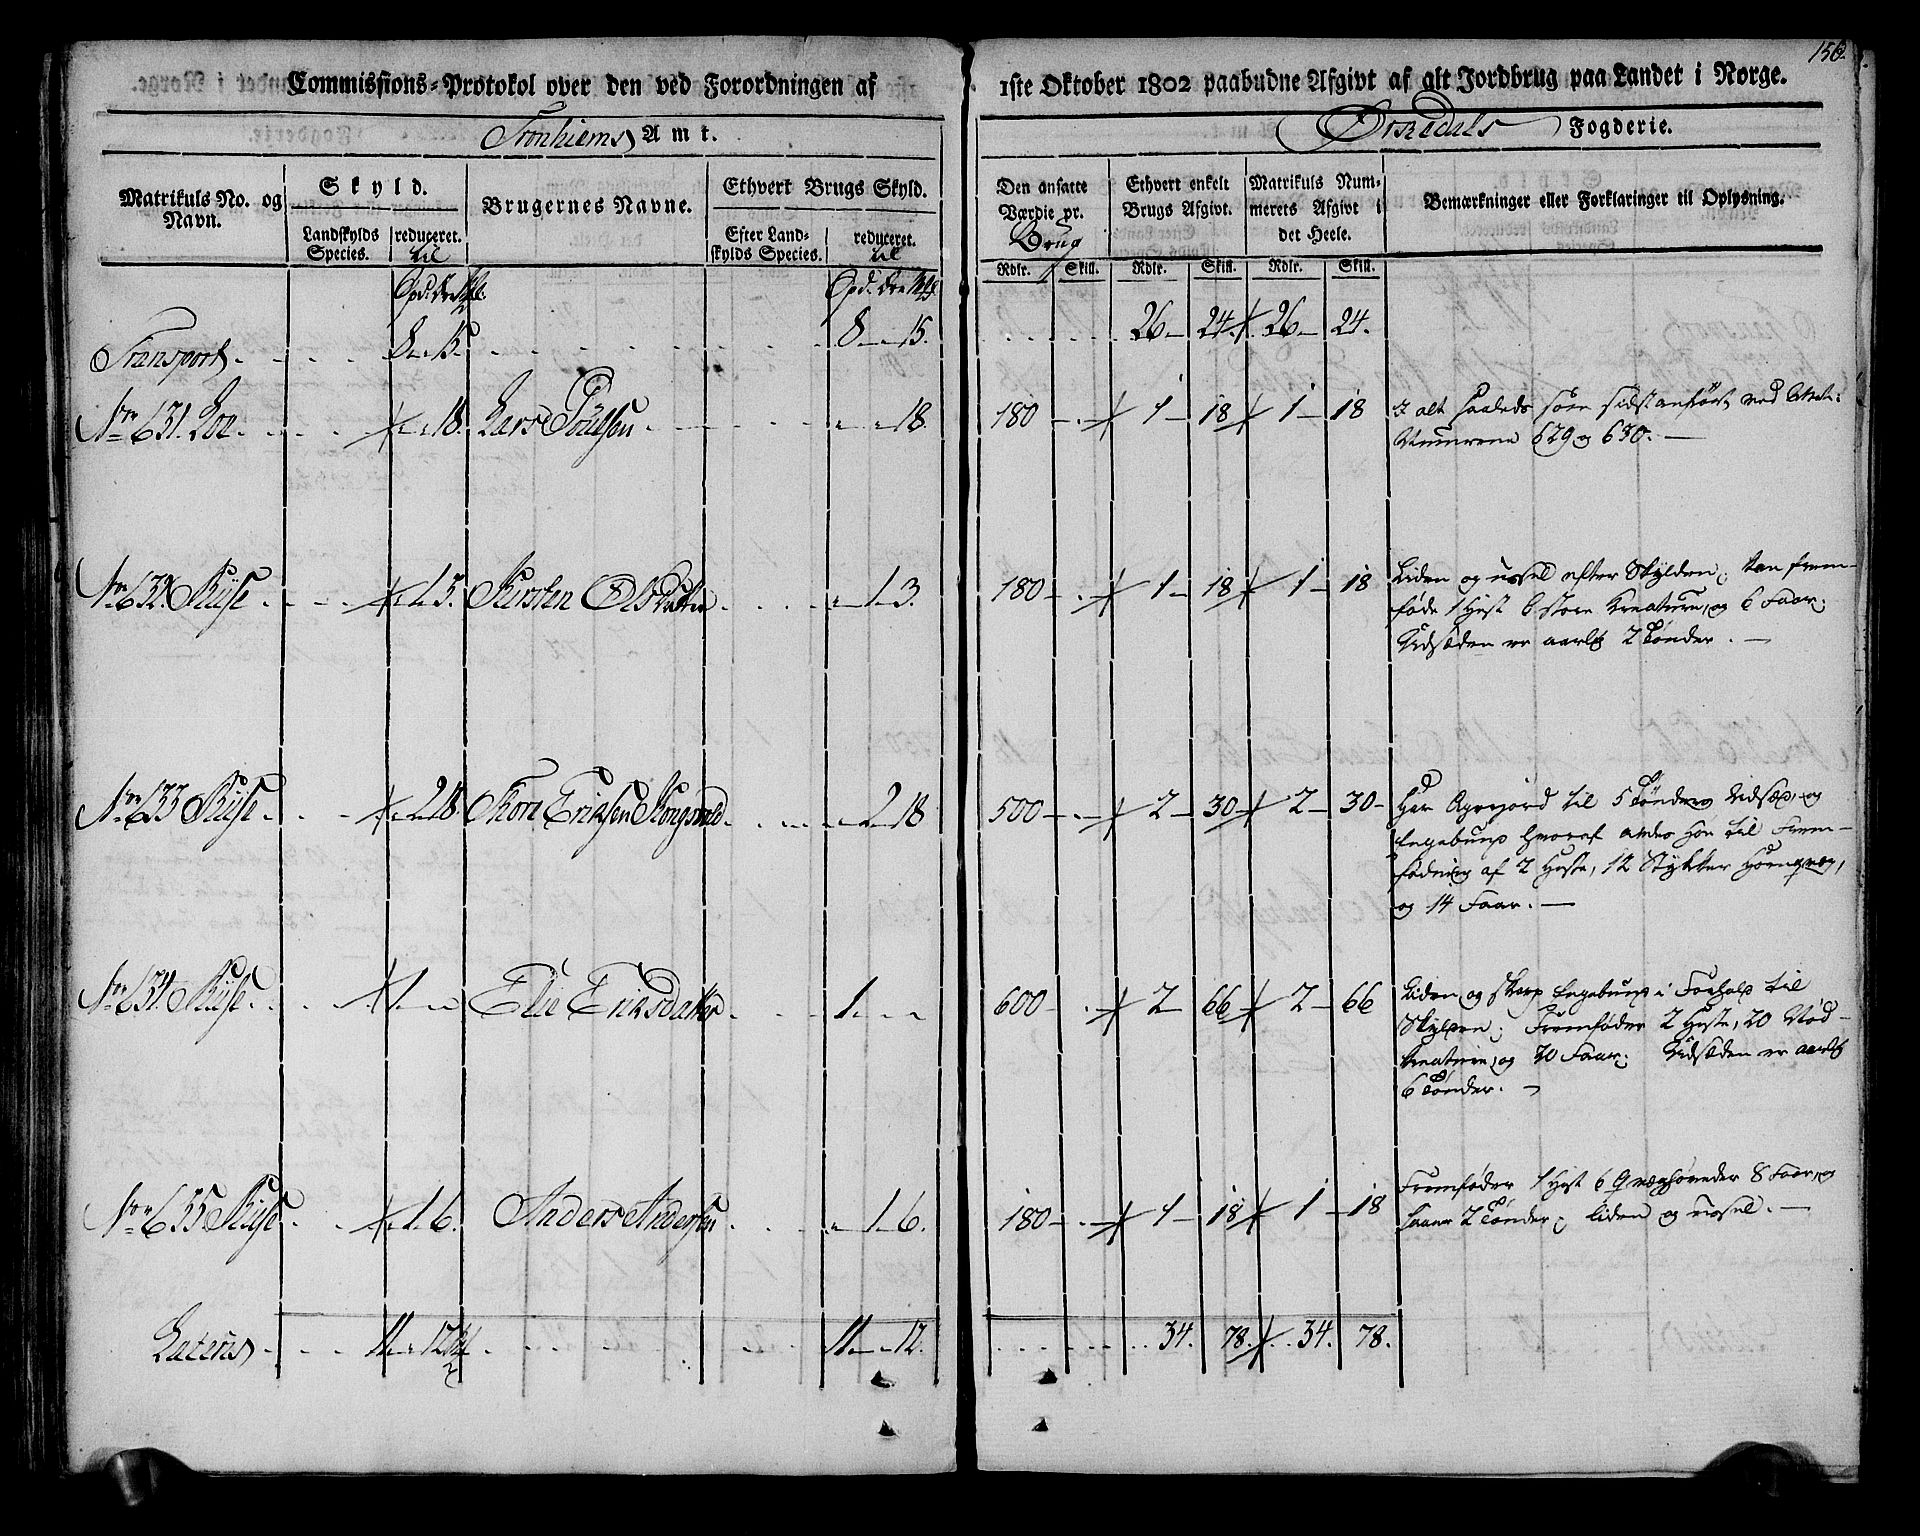 156.
Commissions-Protokol over den ved Forordningen af 1ste Oktober 1802 paabudne Afgivt af alt Jordbrug paa Landet i Norge.
Tronhiems Amt.
Ørkedals Fogderie.
Matrikuls No. og Navn.
Skyld.
Landskylds Species.
reduceret. til
Brugernes Navne.
Ethvert Brugs Skyld.
Efter Landskylds Species.
reduceret. til
Den ansatte Værdie pr. Brug
Ethvert enkelt Brugs Afgivt.
Matrikuls Nummerets Afgivt i det Heele.
Bemærkninger eller Forklaringer til Oplysning.
Rdlr. Skill. Rdlr. Skill. Rdlr. Skill.
Transport 8 " 15. 8 " 15. 26 24 26 24.
No 631. Loe " " 18. Lars Poulsen " " 18. 180 1 18 1 18
I alt saaledes som sidst anført ved Matr:
Numrene 629 og 630.
No 632. Ryse " 1. 3. Kirsten Olsdatter " 1. 3. 180 1 18 1 18
Liden og ussel efter Skylden; kan frem-
føde 1 Hest 6 store Kreature, og 6 Faar;
Udsæden er aarlig 2 Tønder.
No 633 Ryse " 2. 18. Thore Eriksen Kongsvold " 2 18 500 2 30 2 30
Har Agerjord til 5 Tønders Udsæd, og
Engebund hvoraf avles Høe til Frem-
fødning af 2 Heste, 12 Stykker Hornqvæg,
og 14 Faar.
No 634. Ryse 1. " " Elie Eriksdatter 1. " " 600 2 66 2 66
Liden og skarp Engebund i Forhold til
Skylden; Fremføder 2 Heste, 20 Nød-
kreature, og 20 Faar; Udsæden er aarlig
6 Tønder.
No 635 Ryse " 1. 6. Anders Andersen " 1. 6. 180 1 18 1 18
Fremføder 1 Hest 6 Qvæghøveder 8 Faar, og
saaer 2 Tønder; liden og ussel.
Lateris 11 " 12 11 " 12. 34. 78. 34. 78.